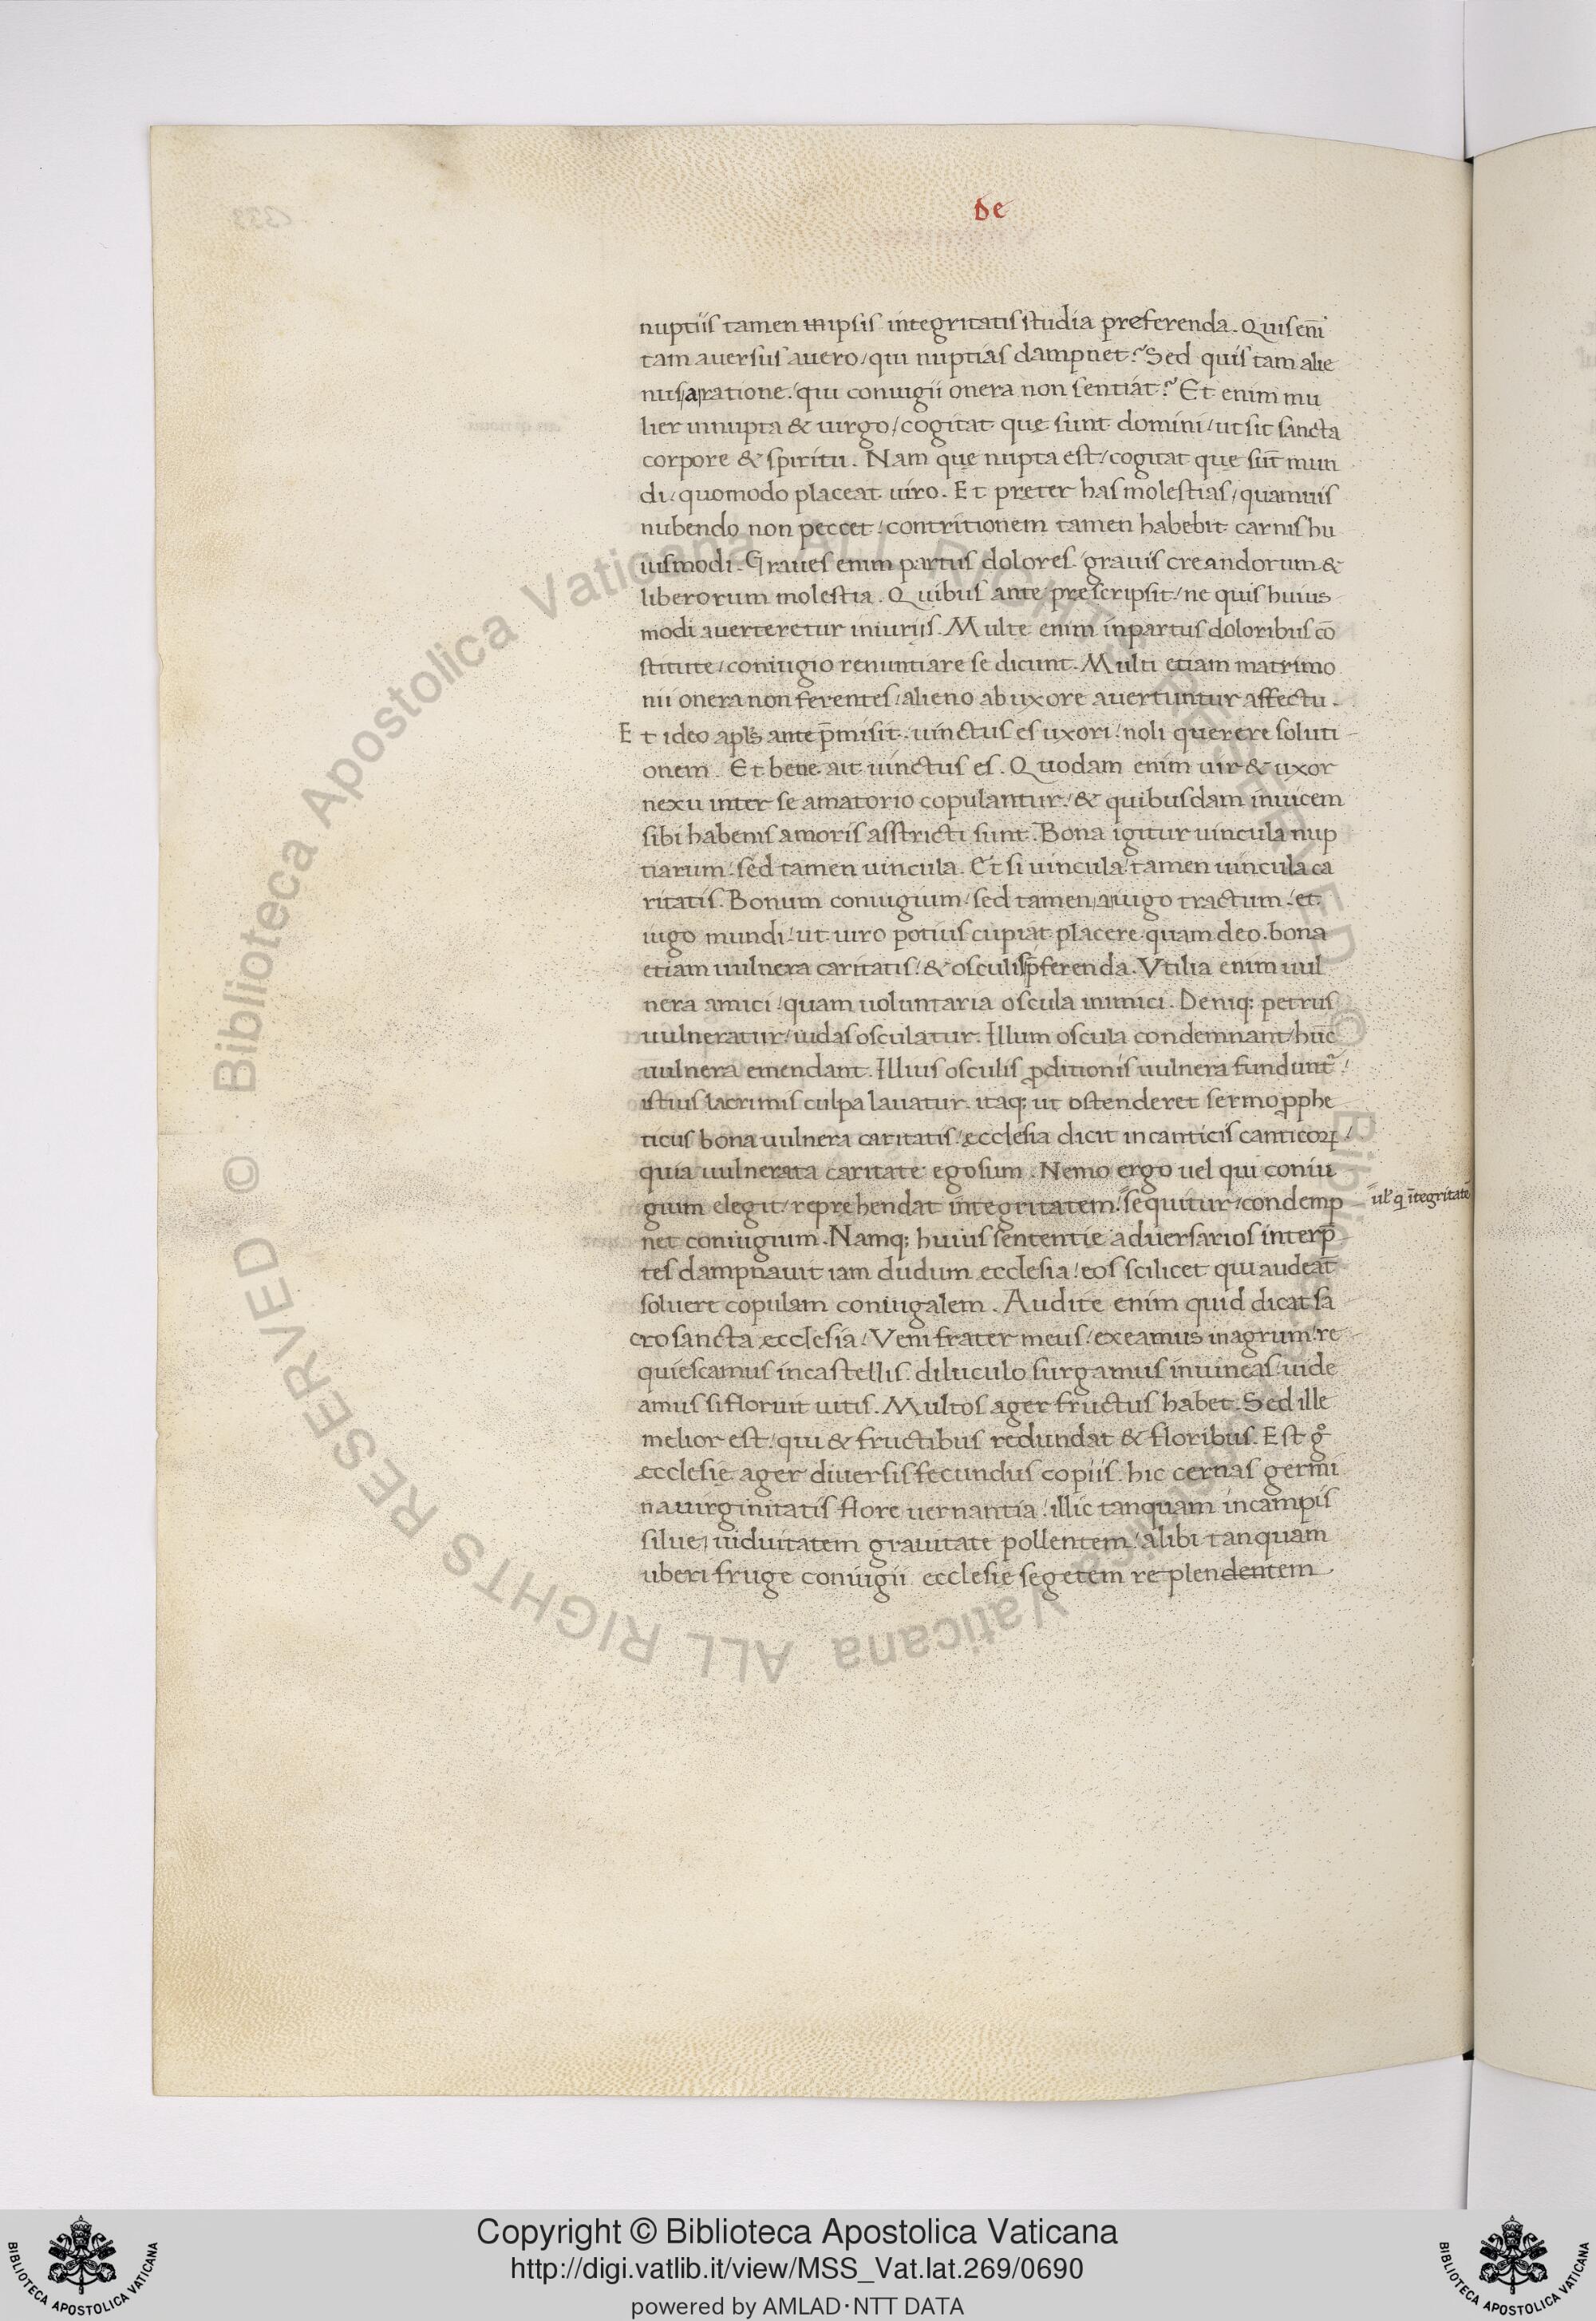 de
nuptiis tamen in ipsis integritatis studia preferenda. Quis eni
tam auersus a uero/ qui nuptias dampnet? Sed quis tam alie
nus a ratione/ qui coniugii onera non sentiat? Et enim mu
lier innupta & uirgo/ cogitat que sunt domini/ ut sit sancta
corpore & spiritu. Nam que nupta est/ cogitat que sūt mun
di/ quomodo placeat uiro. Et preter has molestias/ quamuis
nubendo non peccet/ contritionem tamen habebit carnis hu
iusmodi. Graues enim partus dolores/ grauis creandorum &
liberorum molestia. Quibus ante prescripsit/ ne quis huius
modi auerteretur iniuriis. Multe enim in partus doloribus cō
stitute/ coniugio renuntiare se dicunt. Multi etiam matrimo
nii onera non ferentes/ alieno ab uxore auertuntur affectu.
Et ideo apl̄s ante p̄misit. uinctus es uxori/ noli querere soluti
onem. Et bene ait uinctus es. Quodam enim uir & uxor
nexu inter se amatorio copulantur/ & quibusdam inuicem
sibi habenis amoris asstricti sunt. Bona igitur uincula nup
tiarum/ sed tamen uincula. Et si uincula/ tamen uincula ca
ritatis. Bonum coniugium/ sed tamen a iugo tractum/ et
iugo mundi/ ut uiro potius cupiat placere quam deo. bona
etiam uulnera caritatis/ & osculis p̄ferenda. Vtilia enim uul
nera amici/ quam uoluntaria oscula inimici. Deniq; petrus
uulneratur/ iudas osculatur. Illum oscula condemnant/ hūc
uulnera emendant. Illius osculis ꝓditionis uulnera fundunt᷑/
istius lacrimis culpa lauatur. itaq; ut ostenderet sermo ꝓphe
ticus bona uulnera caritatis/ ecclesia dicit in canticis canticoꝝ/
quia uulnerata caritate ego sum. Nemo ergo uel qui coniu
gium elegit/ reprehendat integritatem/ sequitur/ condemp
ul' q̄ ītegritatē
net coniugium. Namq; huius sententie aduersarios interp̄
tes dampnauit iam dudum ecclesia/ eos scilicet qui audeāt
soluere copulam coniugalem. Audite enim quid dicat sa
cro sancta ecclesia/ Veni frater meus/ exeamus in agrum/ re
quiescamus in castellis. diluculo surgamus in uineas/ uide
amus si floruit uitis. Multos ager fructus habet. Sed ille
melior est/ qui & fructibus redundat & floribus. Est gͦ
ecclesię ager diuersis fecundus copiis. hic cernas germi
na uirginitatis flore uernantia/ illic tanquam in campis
silue/ uiduitatem grauitate pollentem/ alibi tanquam
uberi fruge coniugii ecclesie segetem replendentem
Copyright © Biblioteca Apostolica Vaticana
http://digi.vatlib.it/view/MSS_Vat.lat.269/0690
powered by AMLAD·NTT DATA
BIBLIOTECA APOSTOLICA VATICANA
BIBLIOTECA APOSTOLICA VATICANA
© Biblioteca Apostolica Vaticana ALL RIGHTS RESERVED
© Biblioteca Apostolica Vaticana ALL RIGHTS RESERVED